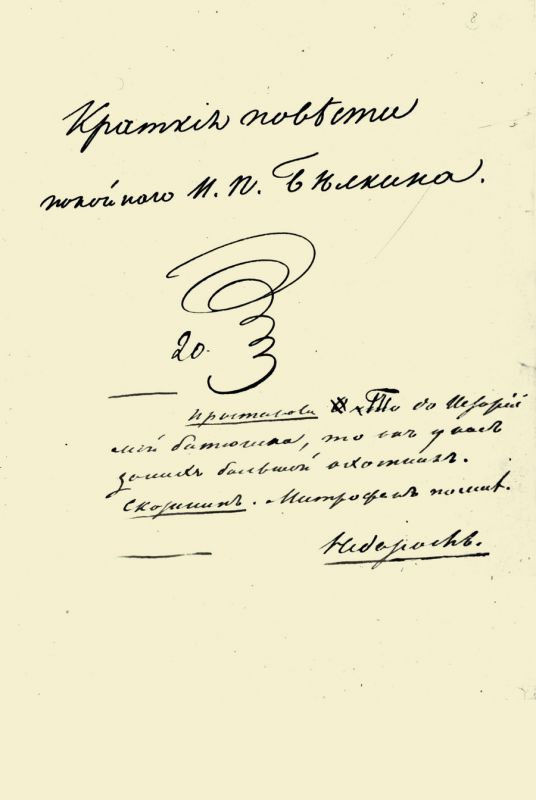 8
Краткія повѣсти
покойнаго И. П. Бѣлкина.
20.
Простакова То до Исторій
мой батюшка, то онъ у насъ
большой охотникъ.
Скотининъ. Митрофанъ по мнѣ.
Недоросль.